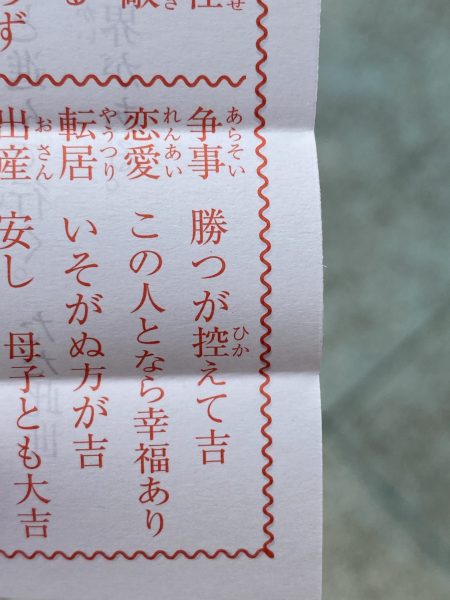 争事 勝つが控えて吉
あらそい
ひか
恋愛 この人となら幸福あり
れんあい
転居 いそがぬ方が吉
やうつり
出産 安し 母子とも大吉
おさん